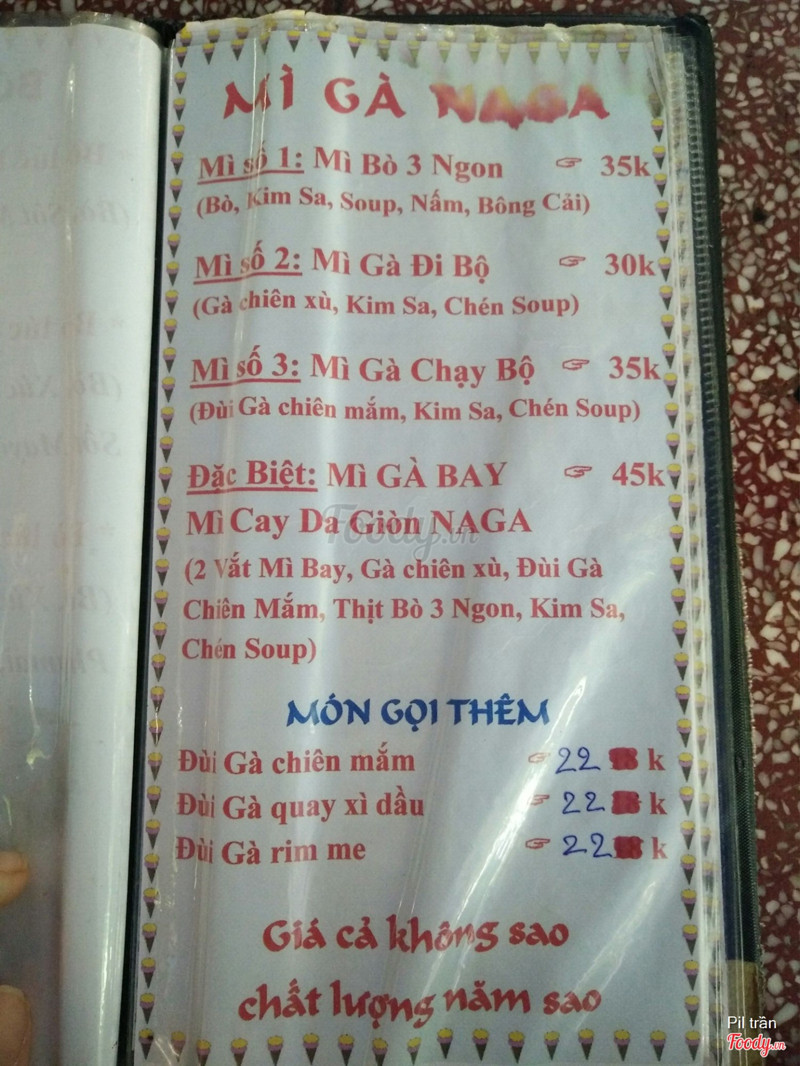 MÌ GÀ NAGA
Mì số 1: Mì Bò 3 Ngon ☞ 35k
(Bò, Kim Sa, Soup, Nấm, Bông Cải)
Mì số 2: Mì Gà Đi Bộ ☞ 30k
(Gà chiên xù, Kim Sa, Chén Soup)
Mì số 3: Mì Gà Chạy Bộ ☞ 35k
(Đùi Gà chiên mắm, Kim Sa, Chén Soup)
Đặc Biệt: Mì GÀ BAY ☞ 45k
Mì Cay Da Giòn NAGA
Foody.vn
(2 Vắt Mì Bay, Gà chiên xù, Đùi Gà
Chiên Mắm, Thịt Bò 3 Ngon, Kim Sa,
Chén Soup)
MÓN GỌI THÊM
Đùi Gà chiên mắm ☞ 22 k
Đùi Gà quay xì dầu ☞ 22 k
Đùi Gà rim me ☞ 22 k
Giá cả không sao
chất lượng năm sao
Pil trần
Foody.vn